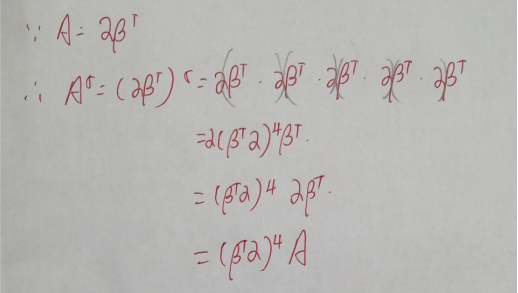 ∵ A = αβᵀ
∴ A⁵ = (αβᵀ)⁵ = α(βᵀ · α)(βᵀ · α)(βᵀ · α)(βᵀ · α)βᵀ
= α(βᵀα)⁴βᵀ.
= (βᵀα)⁴ αβᵀ.
= (βᵀα)⁴ A